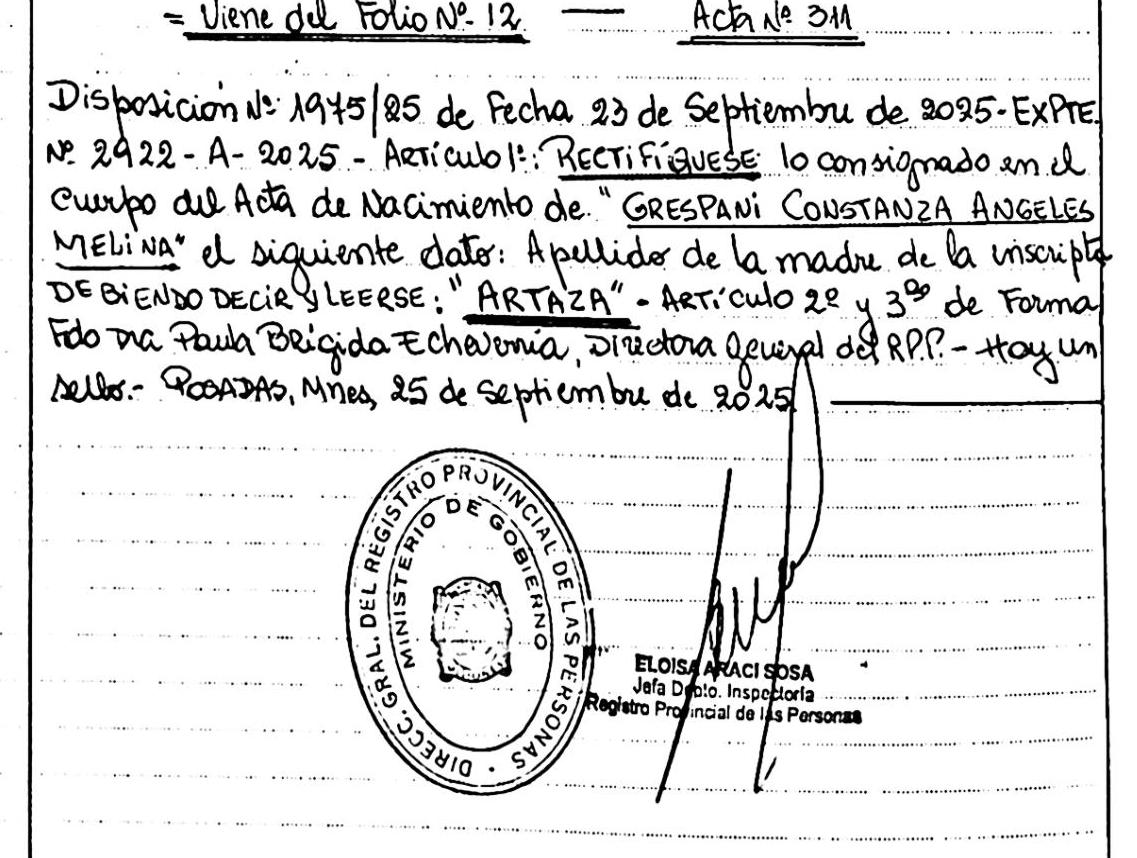 = Viene del Folio Nº 12 — Acta Nº 311
Disposición Nº 1975/25 de Fecha 23 de Septiembre de 2025 - EXPTE.
Nº 2922 - A - 2025 - Artículo 1º: RECTIFÍQUESE lo consignado en el
cuerpo del Acta de Nacimiento de "GRESPANI CONSTANZA ANGELES
MELINA" el siguiente dato: Apellido de la madre de la inscripta
DEBIENDO DECIR y LEERSE: "ARTAZA" - ARTÍCULO 2º y 3º de Forma
Fdo Dra Paula Brígida Echeverría, Directora General del R.P.P. - Hay un
sello.- POSADAS, Mnes, 25 de Septiembre de 2025
DIRECC. GRAL. DEL REGISTRO PROVINCIAL DE LAS PERSONAS
MINISTERIO DE GOBIERNO
ELOISA ARACI SOSA
Jefa Depto. Inspectoría
Registro Provincial de las Personas